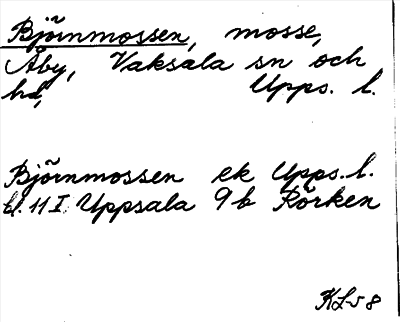 Björnmossen, mosse,
Åby, Vaksala sn och
hd, Upps. l.
Björnmossen ek Upps. l.
bl. 11 I. Uppsala 9b Rörken
KL58